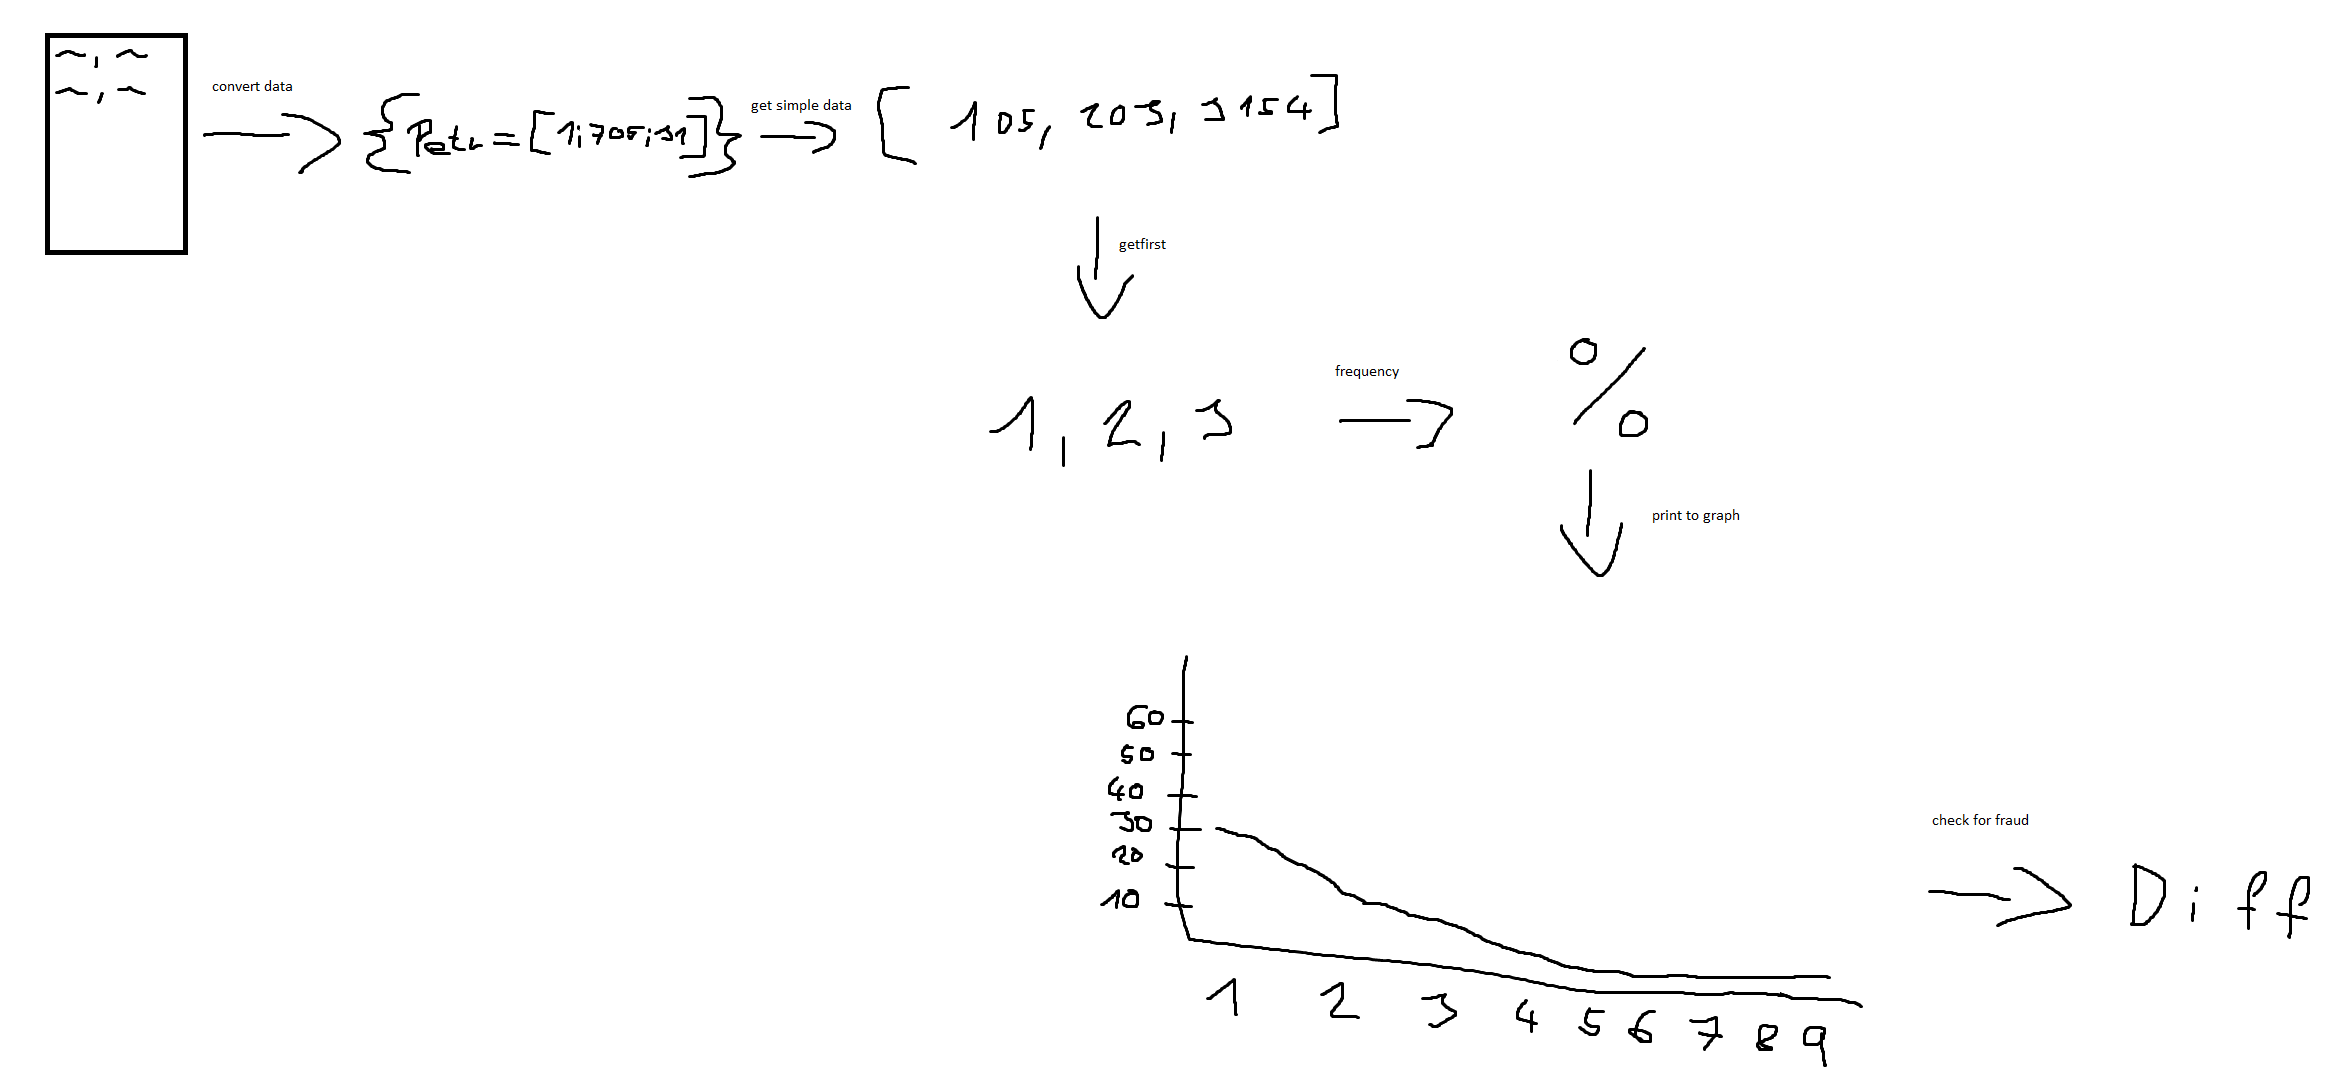 ~, ~
~, ~
convert data
{Petr=[1;705;31]}
get simple data
[ 105, 203, 3154]
getfirst
1, 2, 3
frequency
%
print to graph
60
50
40
30
20
10
1 2 3 4 5 6 7 8 9
check for fraud
Diff